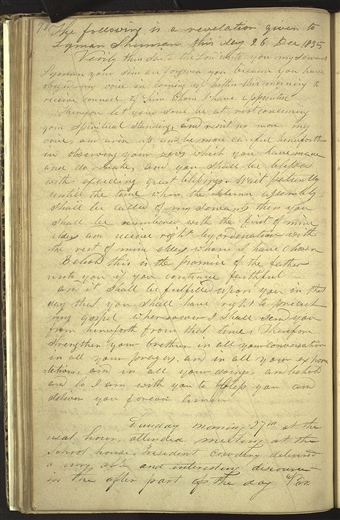 The following is a revelation given to
Lyman Sherman this day 26 Dec 1835
Verily thus saith the Lord unto you my servant
Lyman your sins are forgiven you because you have
obeyed my voice in coming up hither this morning to
receive councel of him whom I have appointed
Therefore let your soul be at rest concerning
your spiritual standing, and resist no more my
voice, and arise up and be more careful henceforth
in observing your vows which you have made
and do make, and you shall be blessed
with exceding great blessings. Wait patiently
untill the time when the solemn assembly
shall be called of my servants then you
shall be numbered with the first of mine
elders and receive right by ordination with
the rest of mine elders whom I have chosen
Behold this is the promise of the father
unto you if you continue faithful
and it shall be fulfilled upon you in that
day that you shall have right to preach
my gospel wheresoever I shall send you
from henceforth from that time. Therefore
strengthen your brethren in all your conversation
in all your prayers, and in all your exhor
tations, and in all your doings, and behold
and lo I am with you to bless you and
deliver you forever Amen
Sunday morning 27th at the
usual hour, attended meeting at the
School house, President Cowdery delivered
a very able and interesting discourse
in the after part of the day